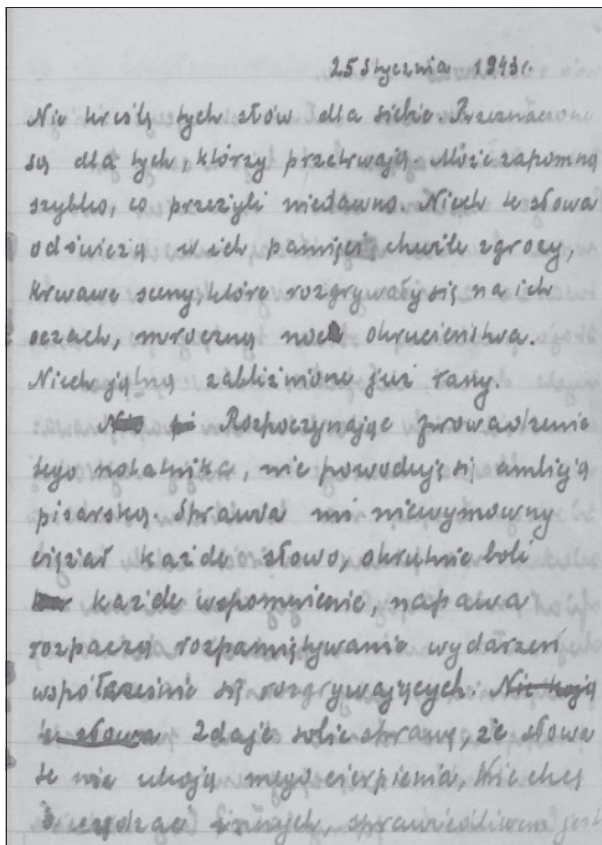 25 stycznia 1943 r.
Nie kreślę tych słów dla siebie. Przeznaczone
są dla tych, którzy przetrwają. Może zapomną
szybko, co przeżyli niedawno. Niech te słowa
odświeżą w ich pamięci chwile zgrozy,
krwawe sceny, które rozgrywały się na ich
oczach, mroczną noc okrucieństwa.
Niech jątrzą zabliźnione już rany.
Rozpoczynając prowadzenie
tego notatnika, nie powoduję się ambicją
pisarską. Sprawia mi niewymowny
ciężar każde słowo, okrutnie boli
każde wspomnienie, napawa
rozpaczą rozpamiętywanie wydarzeń
współcześnie się rozgrywających. Nie koją
te słowa Zdaję sobie sprawę, że słowa
te nie ukoją mego cierpienia, Nie chcę
sprawiedliwem jest